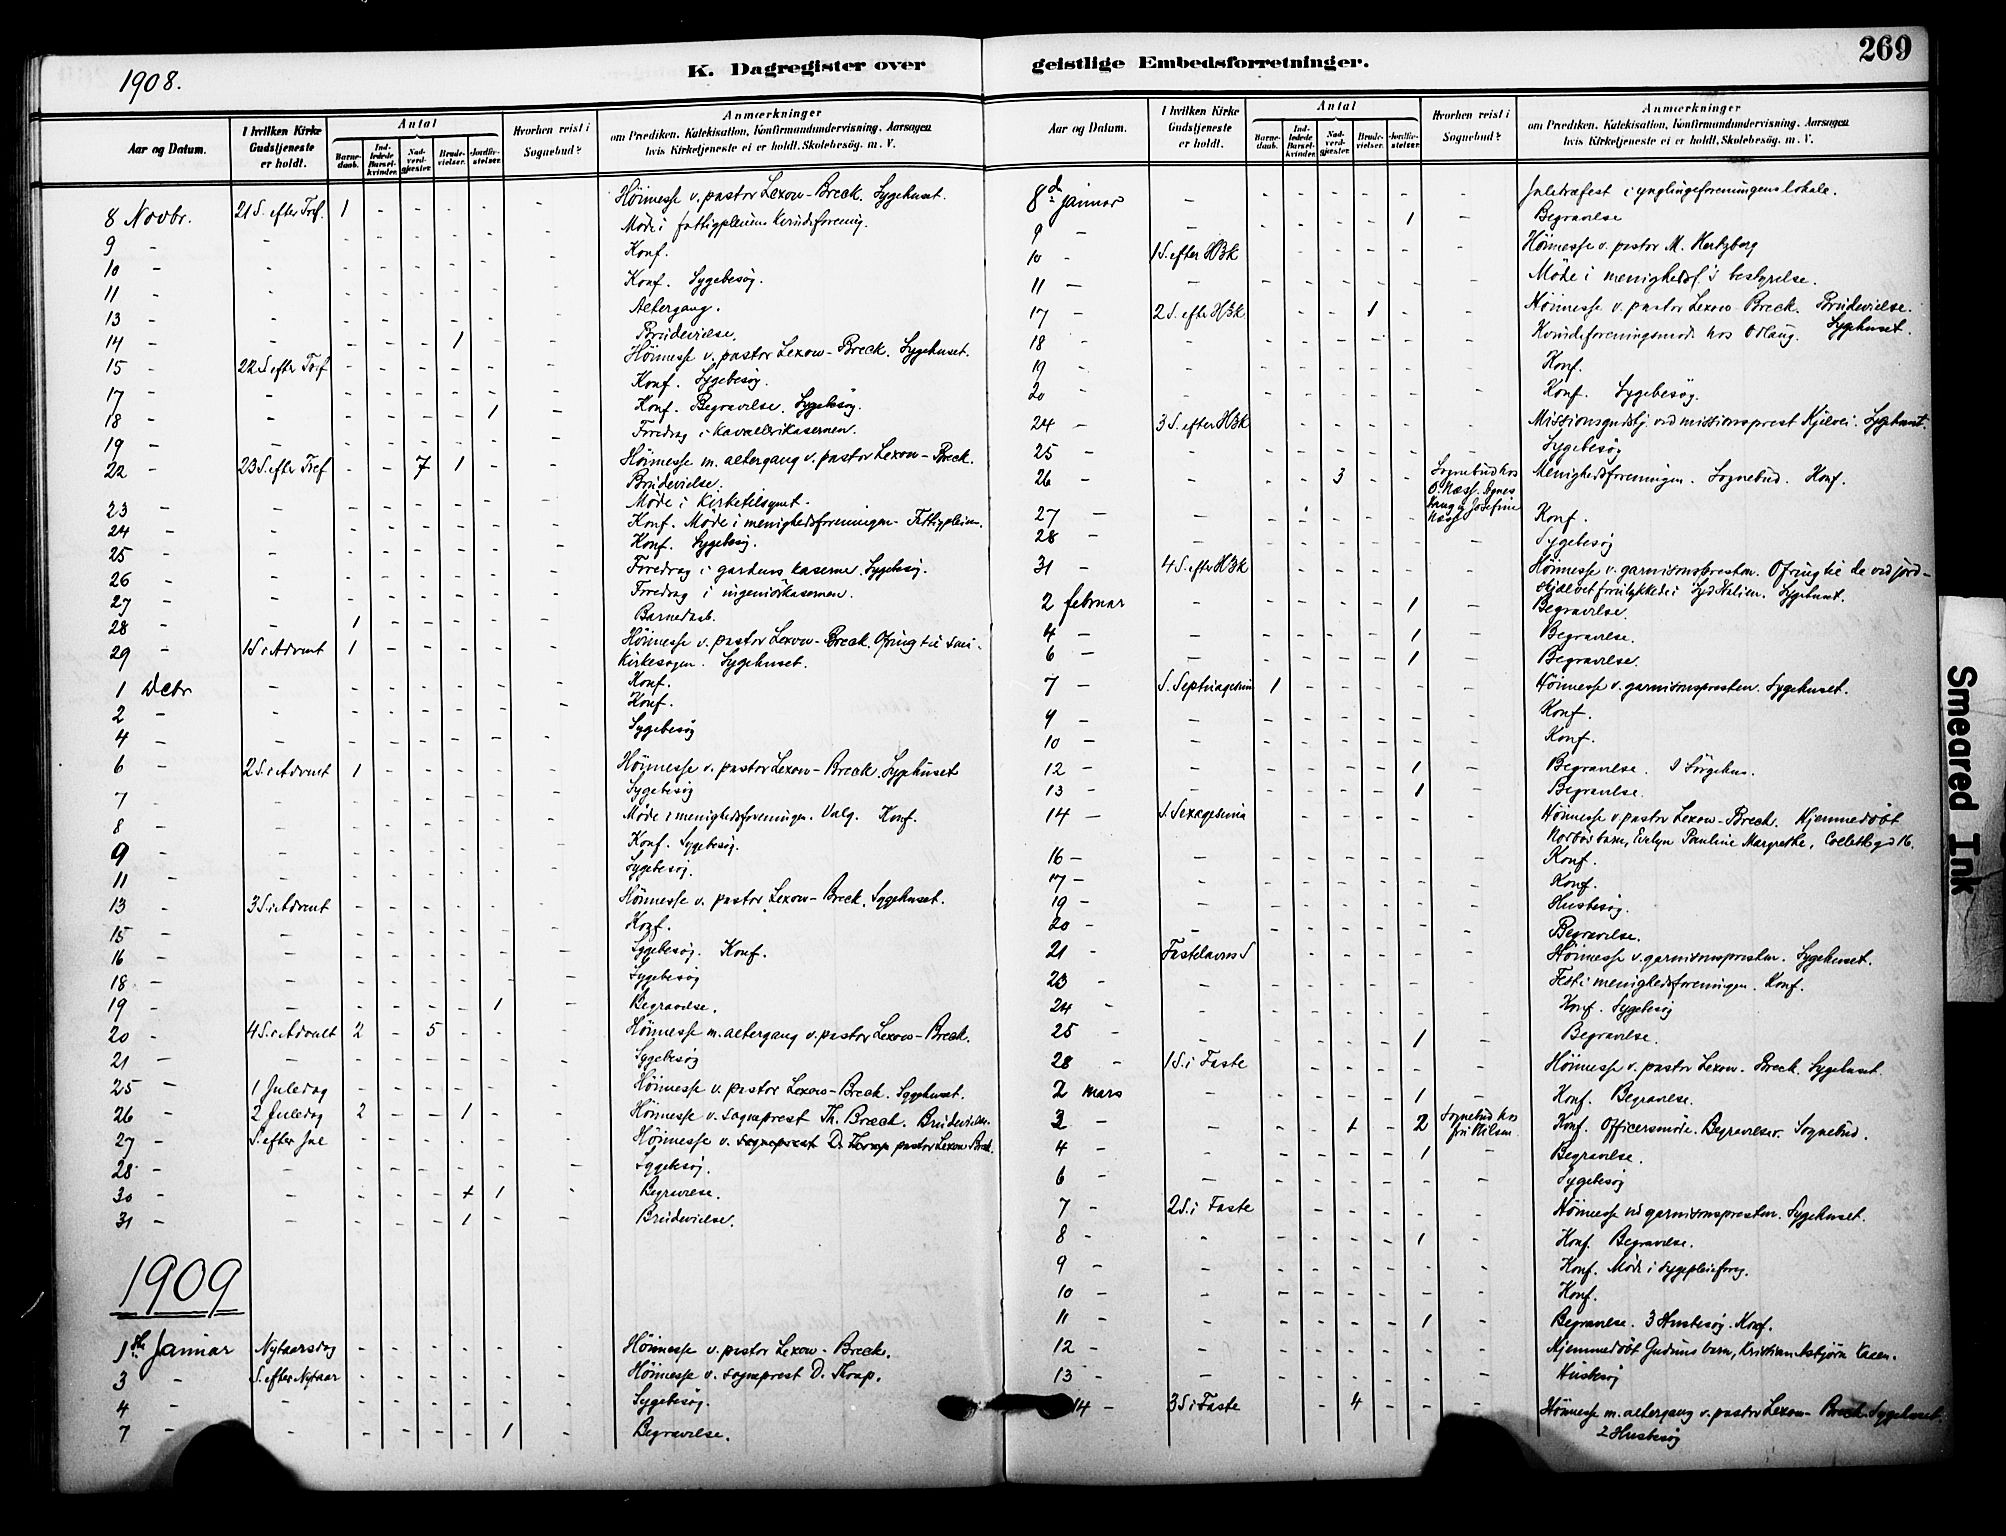 1908.
K. Dagregister over
geistlige Embedsforretninger.
269
Aar og Datum.
I hvilken Kirke Gudstjeneste er holdt.
Antal
Barnedaab.
Indledede Barselkvinder.
Nadverdgjester.
Brudevielser.
Jordfæstelser.
Hvorhen reist i Sognebud?
Anmærkninger
om Prædiken, Katekisation, Konfirmandundervisning, Aarsagen
hvis Kirketjeneste ei er holdt, Skolebesøg m. V.
8 Novbr. 21 S. efter Tref. 1 - - - - - Höimesse v. pastor Lexow-Breck. Sygehuset.
9 - - - - - - - - Möde i fattigpleiens kvindeforening.
10 - - - - - - - - Konf.
11 - - - - - - - - Konf. Sygebesög.
13 - - - - - - - - Altergang.
14 - - - - - 1 - - Brudevielse.
15 - 22 S efter Tref - - - - - - Höimesse v. pastor Lexow-Breck. Sygehuset.
17 - - - - - - - - Konf. Sygebesög.
18 - - - - - - 1 - Konf. Begravelse. Sygebesög.
19 - - - - - - - - Foredrag i Kavallerikasernen.
22 - 23 S. efter Tref - - 7 1 - - Höimesse m. altergang v. pastor Lexow-Breck.
Brudevielse.
23 - - - - - - - - Möde i Kirketilsynet.
24 - - - - - - - - Konf. Möde i menighedsforeningen - Fattigpleien.
25 - - - - - - - - Konf. Sygebesög.
26 - - - - - - - - Foredrag i gardens kaserne. Sygebesög.
27 - - - - - - - - Foredrag i ingeniörkasernen.
28 - - 1 - - - - - Barnedaab.
29 - 1 S. i Advent 1 - - - - - Höimesse v. pastor Lexow-Breck. Ofring til
Kirkesagen. Sygehuset.
1 Decbr - - - - - - - Konf.
2 - - - - - - - - Konf.
4 - - - - - - - - Sygebesög
6 - 2 S. i Advent 1 - - - - - Höimesse v. pastor Lexow-Breck. Sygehuset
7 - - - - - - - - Sygebesög
8 - - - - - - - - Möde i menighedsforeningen. Valg. Konf.
9 - - - - - - - - Konf. Sygebesög.
11 - - - - - - - - Sygebesög.
13 - 3 S. i Advent - - - - - - Höimesse v. pastor Lexow-Breck. Sygehuset.
15 - - - - - - - - Konf.
16 - - - - - - - - Sygebesög. Konf.
18 - - - - - - - - Sygebesög
19 - - - - - - 1 - Begravelse.
20 - 4 S. i Advent 2 - 5 - - - Höimesse m. altergang v. pastor Lexow-Breck.
21 - - - - - - - - Sygebesög
25 - 1 Juledag - - - - - - Höimesse v. pastor Lexow-Breck. Sygehuset.
26 - 2 Juledag 2 - - 1 - - Höimesse v. sogneprest Th. Breck. Brudevielse.
27 - S. efter Jul - - - - - - Höimesse v. sogneprest D. Thrap pastor Lexow Breck.
28 - - - - - - - - Sygebesög.
30 - - - - - 1 1 - Begravelse.
31 - - - - - 1 - - Brudevielse.
1909
1ste Januar Nytaarsdag - - - - - - Höimesse v. pastor Lexow-Breck.
3 - S. efter Nytaar - - - - - - Höimesse v. sogneprest D. Thrap.
4 - - - - - - - - Sygebesög.
7 - - - - - - 1 - Begravelse.
Aar og Datum.
I hvilken Kirke Gudstjeneste er holdt.
Antal
Barnedaab.
Indledede Barselkvinder.
Nadverdgjester.
Brudevielser.
Jordfæstelser.
Hvorhen reist i Sognebud?
Anmærkninger
om Prædiken, Katekisation, Konfirmandundervisning, Aarsagen
hvis Kirketjeneste ei er holdt, Skolebesøg m. V.
8de januar - - - - - - - Juletræfest i ynglingeforeningens lokale.
9 - - - - - - 1 - Begravelse
10 - 1 S. efter H3k - - - - - - Höimesse v. pastor M. Hertzberg
11 - - - - - - - - Möde i menighedsf.s bestyrelse.
17 - 2 S. efter H3k - - - 1 - - Höimesse v. pastor Lexow Breck. Brudevielse.
Sygehuset.
18 - - - - - - - - Kvindeforeningsmöde hos Odlaug.
19 - - - - - - - - Konf.
20 - - - - - - - - Konf. Sygebesög.
24 - 3 S. efter H3k - - - - - - Missionsgudstj. ved missionsprest Kjelvei. Sygehuset.
25 - - - - - - - - Sygebesög
26 - - - - 3 - - Sognebud hos O. Næss. Agnes Haug og Josefine Næss Menighedsforeningen. Sognebud. Konf.
27 - - - - - - - Konf.
28 - - - - - - - - Sygebesög
31 - 4 S. efter H3k - - - - - - Höimesse v. garnisonspresten. Ofring til de ved jord-
skjælvet forulykkede i Syd Italien. Sygehuset.
2 februar - - - - - 1 - Begravelse.
4 - - - - - - 1 - Begravelse.
6 - - - - - - 1 - Begravelse.
7 - S. Septuagesima 1 - - - - - Höimesse v. garnisonspresten. Sygehuset.
9 - - - - - - - - Konf.
10 - - - - - - - - Konf.
12 - - - - - - 1 - Begravelse. I Sörgehus.
13 - - - - - - 1 - Begravelse.
14 - S. Sexagesima - - - - - - Höimesse v. pastor Lexow-Breck. Hjemmedöbt
barn, Evelyn Pauline Margrethe, 16.
16 - - - - - - - - Konf.
17 - - - - - - - - Konf.
19 - - - - - - - - Husbesög.
20 - - - - - - - - Begravelse.
21 - Fastelavns S - - - - - - Höimesse v. garnisonspresten. Sygehuset.
23 - - - - - - - - Fest i menighedsforeningen. Konf.
24 - - - - - - - - Konf. Sygebesög
25 - - - - - - 1 - Begravelse.
28 - 1 S. i Faste - - - - - - Höimesse v. pastor Lexow-Breck. Sygehuset.
2 mars - - - - - 1 - Konf. Begravelse.
3 - - - - 1 - 2 Sognebud hos fru Nilsen Konf. Officersmöde. Begravelser. Sognebud.
4 - - - - - - 1 - Begravelse.
6 - - - - - - - - Sygebesög
7 - 2 S. i Faste - - - - - - Höimesse ved garnisonspresten. Sygehuset.
8 - - - - - - 1 - Konf. Begravelse.
9 - - - - - - - - Konf. Möde i sygepleieforeg.
10 - - - - - - - - Konf.
11 - - - - - - 1 - Begravelse. 3 Husbesög. Konf.
12 - - - - - - - - Hjemmedöbt Guduns barn, Kristian Asbjørn
13 - - - - - - - - Husbesög
14 - 3 S i Faste - 4 - - - Höimesse m. altergang v. pastor Lexow-Breck. Sygehuset.
2 Husbesög
Smeared Ink